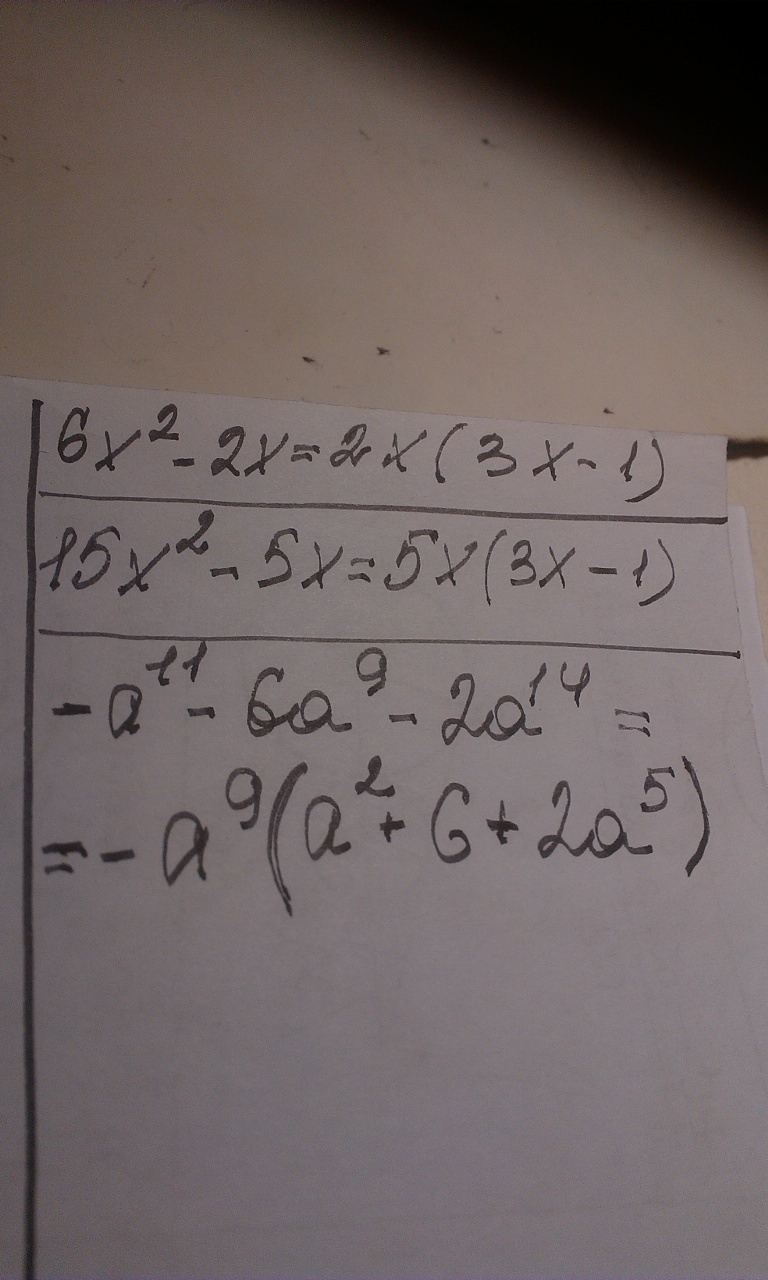 6x² - 2x = 2x(3x - 1)
15x² - 5x = 5x(3x - 1)
-a¹¹ - 6a⁹ - 2a¹⁴ =
= -a⁹(a² + 6 + 2a⁵)